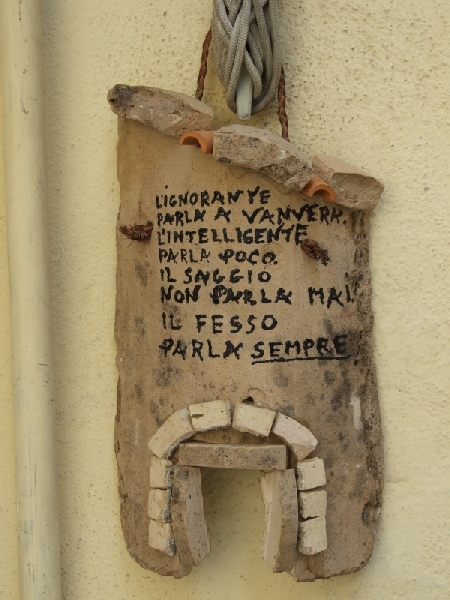 L'IGNORANTE
PARLA A VANVERA.
L'INTELLIGENTE
PARLA POCO.
IL SAGGIO
NON PARLA MAI.
IL FESSO
PARLA SEMPRE